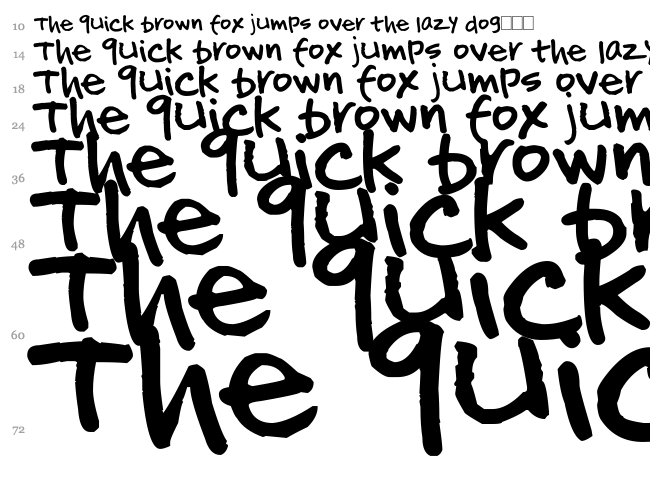 10 The quick brown fox jumps over the lazy dog□□□
14 The quick brown fox jumps over the lazy
18 The quick brown fox jumps over
24 The quick brown fox jum
36 The quick brown
48 The quick br
60 The quick
72 The quic